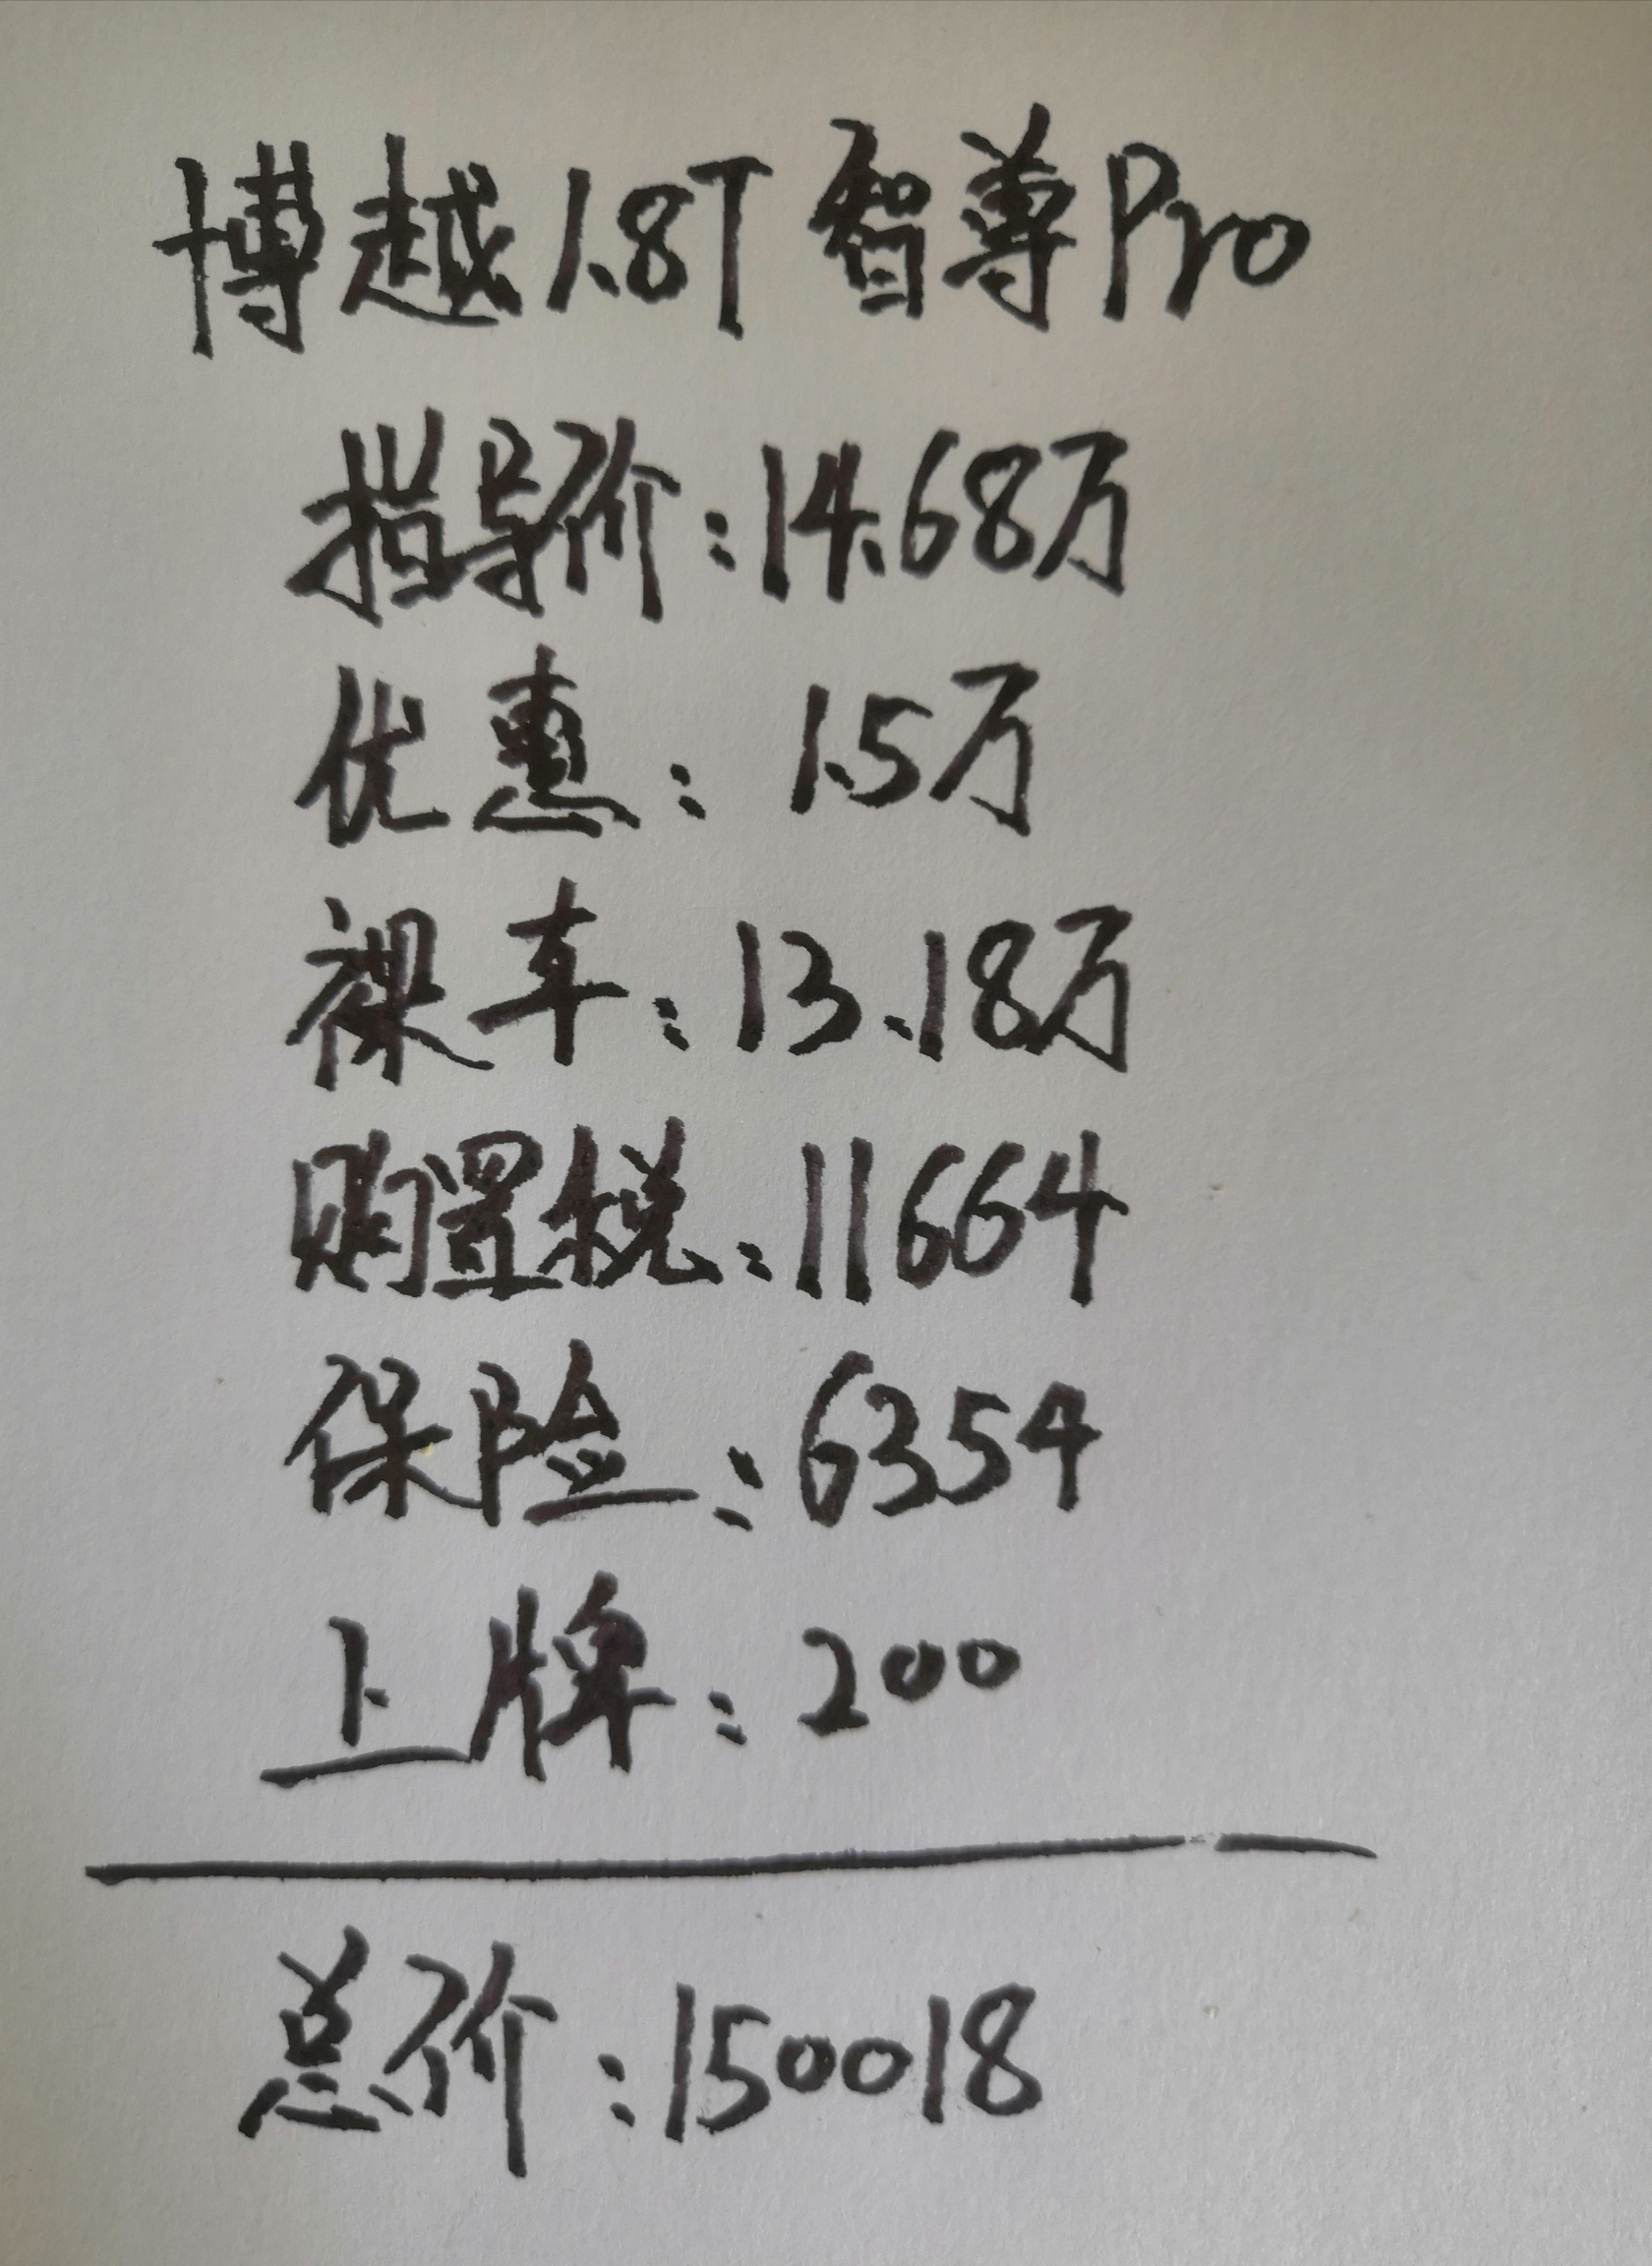 博越1.8T 智尊Pro
指导价:14.68万
优惠: 1.5万
裸车:13.18万
购置税:11664
保险:6354
上牌:200
总价:150018